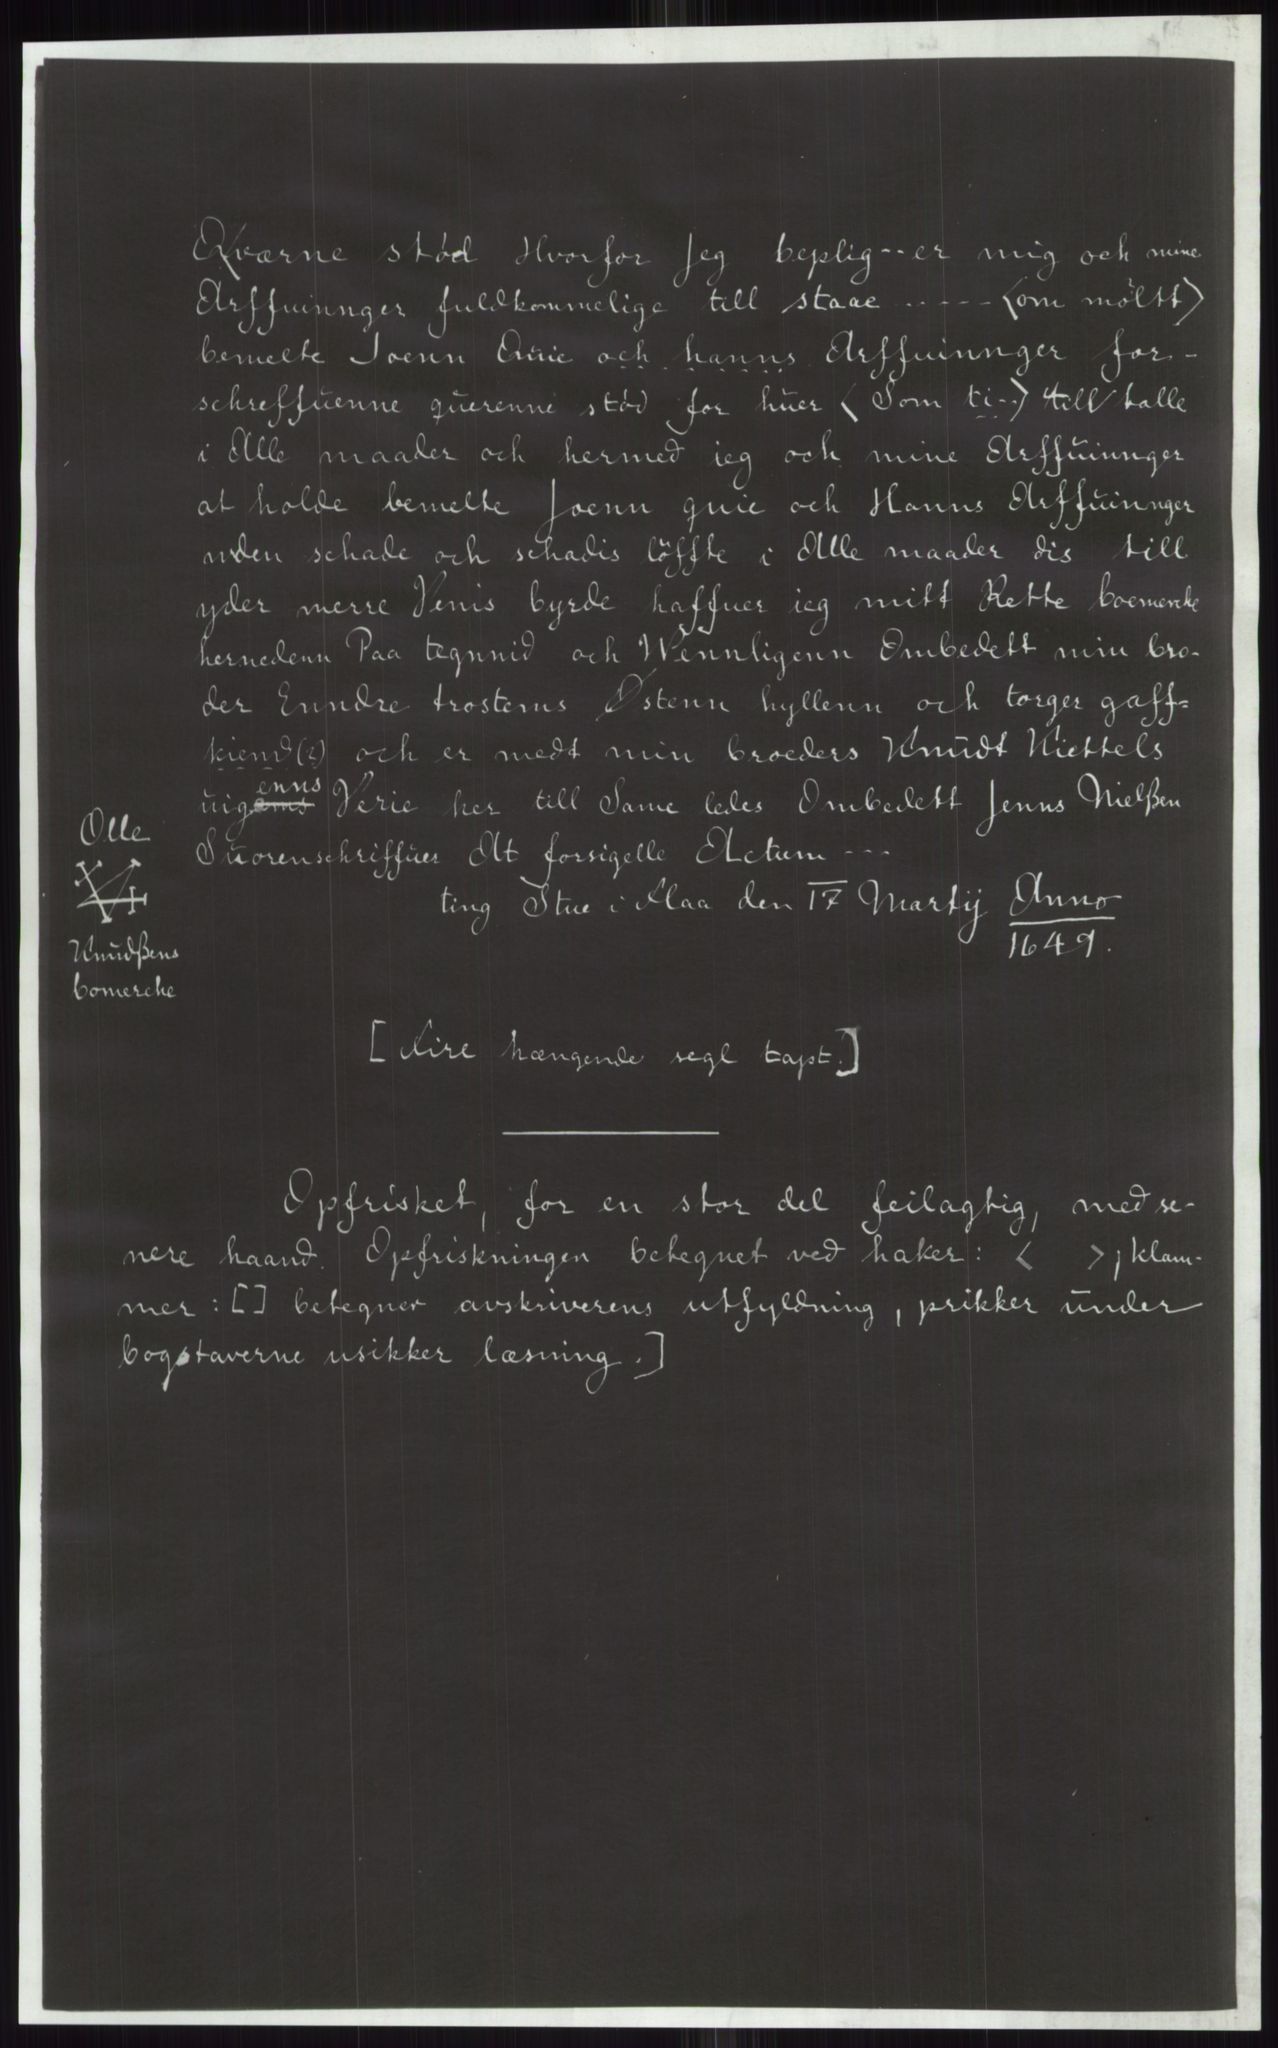 Qværne stød Hvorfor Jeg beplig--er mig och mine
Arffuinnger fuldkommelige till staae ------ <om möltt>
bemelte Joenn Quie och hanns Arffuinnger for-
schreffuenne querenne stød for huer <Som ti--> till talle
i Alle maader och hermed ieg och mine Arffuinnger
at holde bemelte Joenn quie och Hanns Arffuinnger
uden schade och schadis löffte i Alle maader dis till
yder merre Venis byrde haffuer ieg mitt Rette boemercke
hernedenn Paa tegnnid och Wennligenn Ombedett min bro-
der Enndre trostems Østenn hyllenn och torger gaff=
kiend(?) och er medt min broeders Knudt Kiettels
enns
uigems Verie her till Same ledes Ombedett Jenns Nielßen
Suorenschriffuer At forsigelle Actum ---
ting Stue i Aaa den 17 Martij Anno
1649.
Olle
Knudßens
bomercke
[Fire hængende segl tapt.]
Opfrisket, for en stor del feilagtig, med se-
nere haand. Opfriskningen betegnet ved haker: < >; klam-
mer: [] betegner avskriverens utfyldning, prikker under
bogstaverne usikker læsning.]